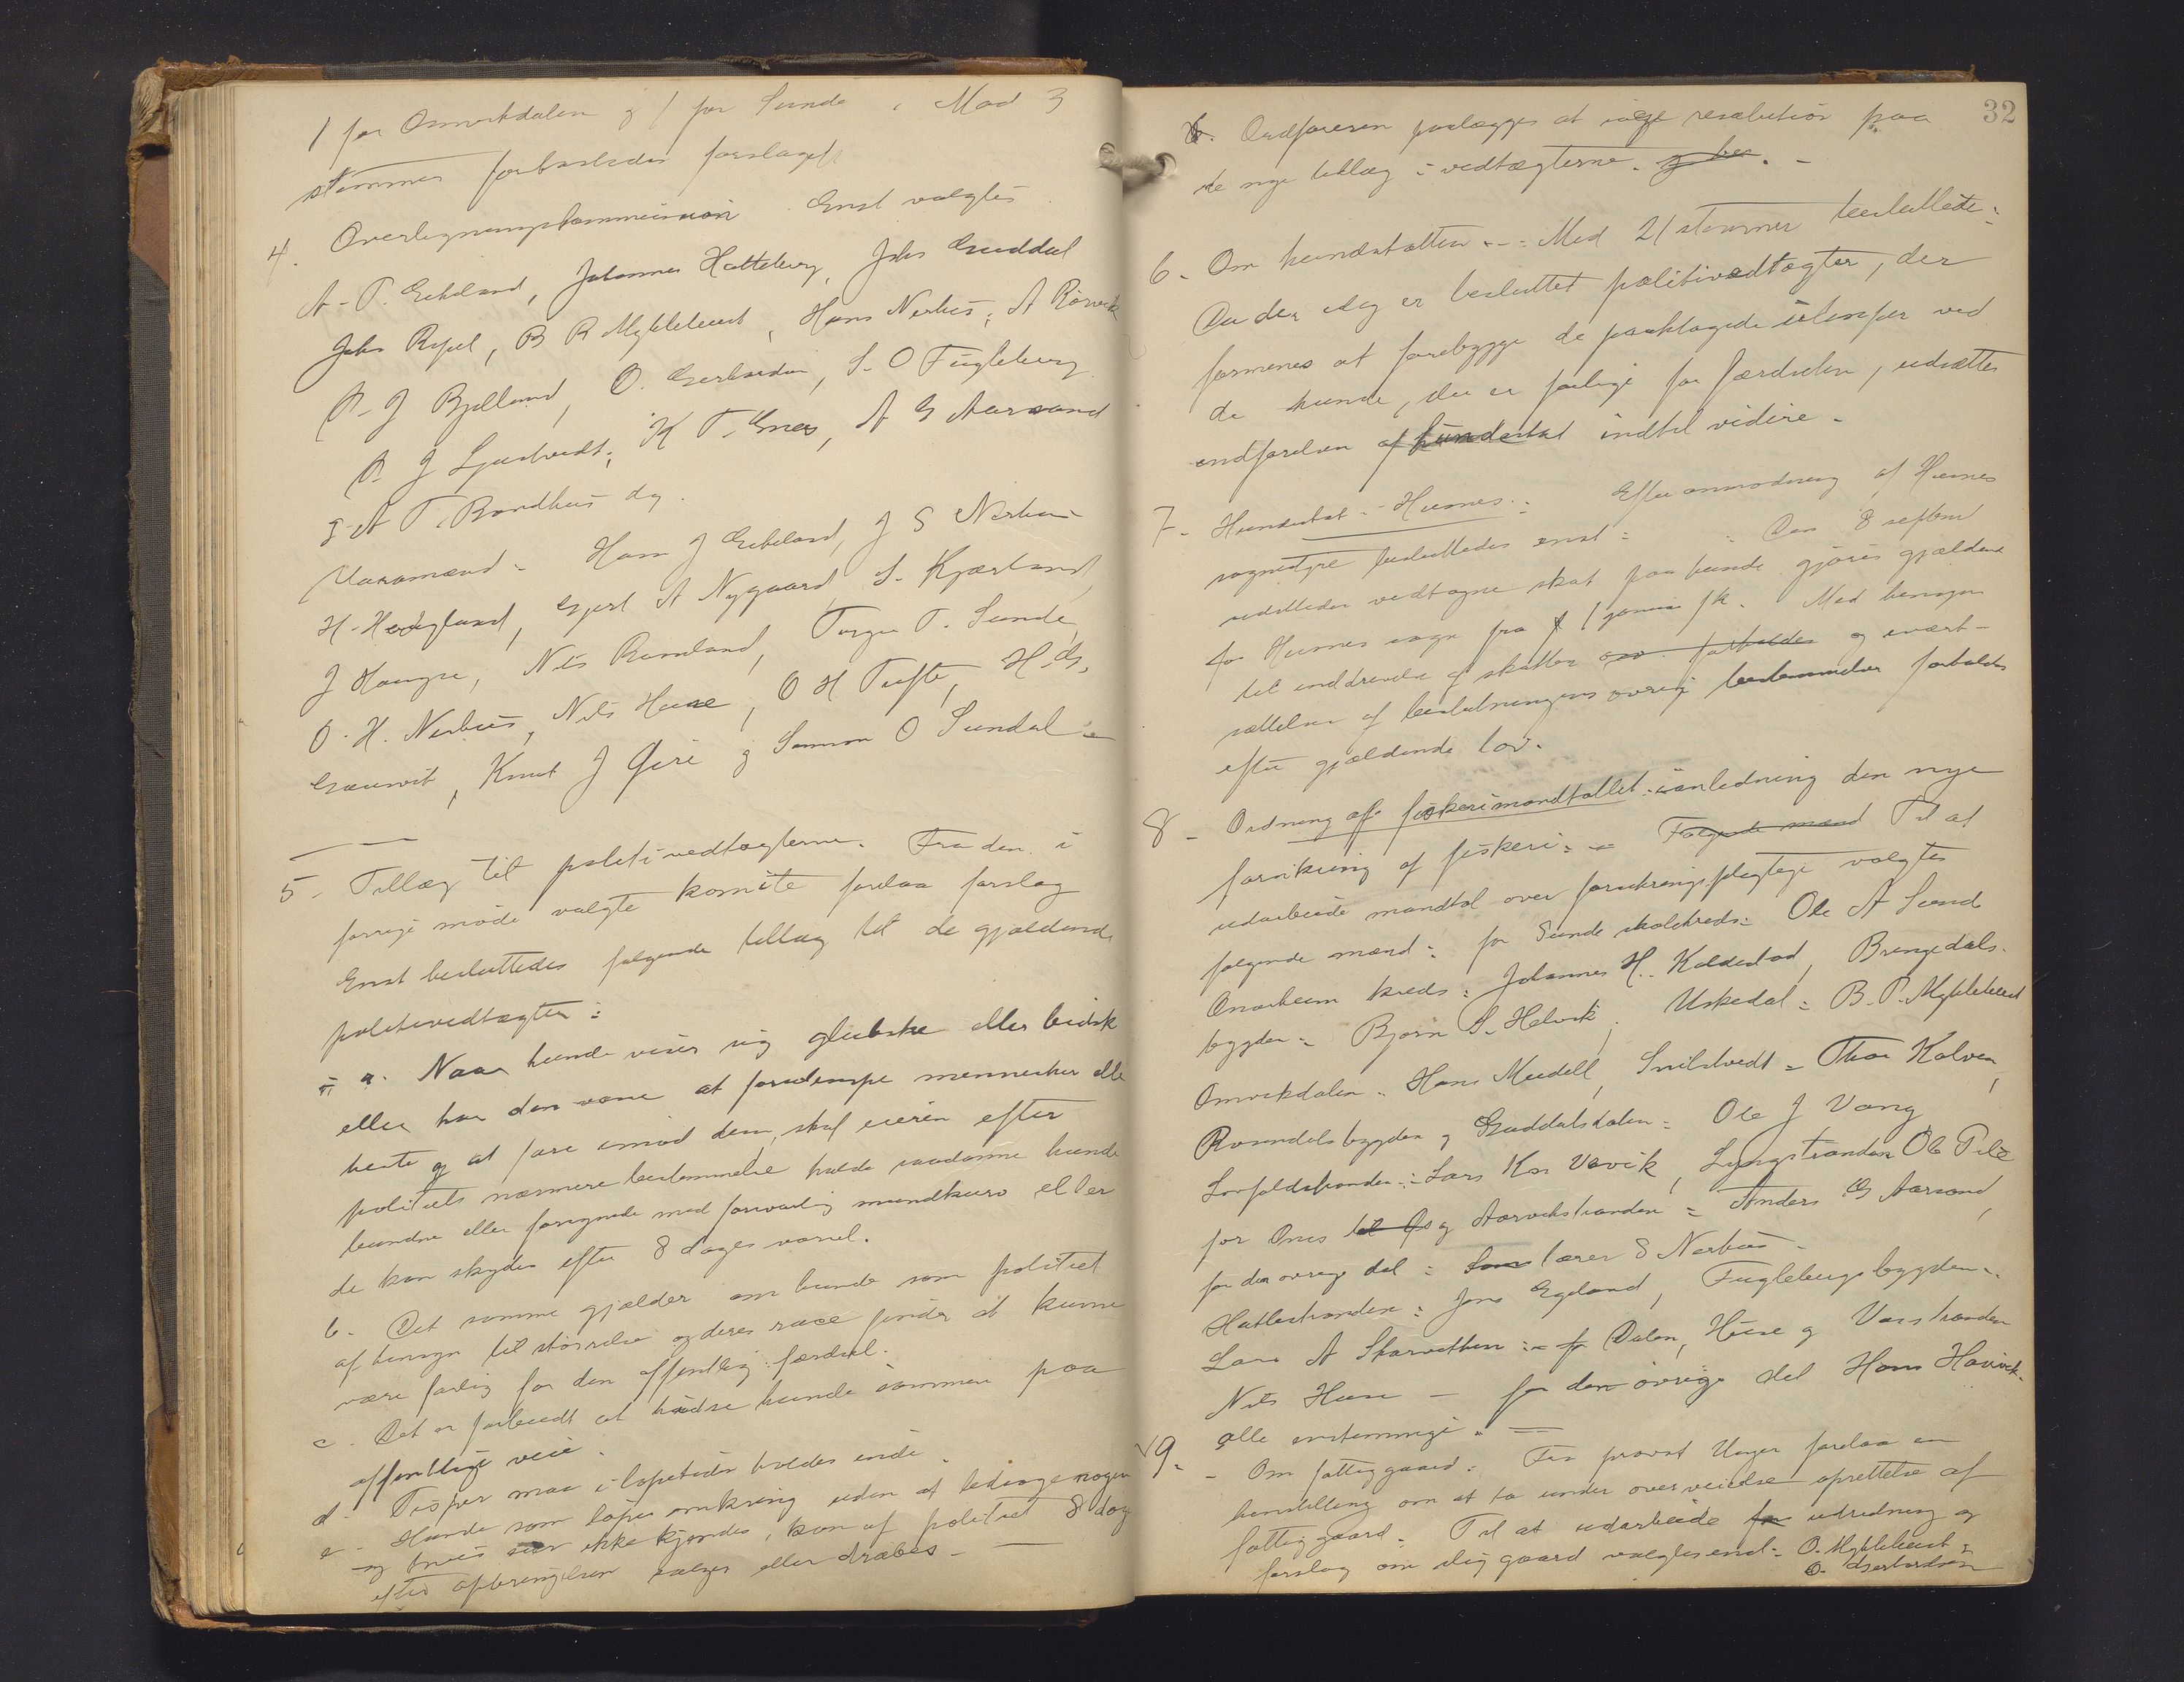 1 for Omvikdalen og 1 for Sunde. Mod 3
stemmer forkastedes forslaget
4. Overligningskommission Enst valgtes
A. T. Eikeland, Johannes Hatteberg, Johs Guddal
Johs Røsel, B B Myklebust, Hans Nerhus, A Rørvik
P. J Bjelland, O. Gerhardsen, S. O Fugleberg
P J Ljustvedt, K T. Enes, A G Aarsand
g A T. Bondhus dg.
Varamænd: Hans J Eikeland, J S Nerhus
H. Hedgland, Gjert A Nygaard, S. Kjærland
J Haugse, Nils Ramland, Torger T. Sunde,
O. H. Nerhus, Nils Huse, O H Tufte, H. G.
Gaunvit, Knut J Gire g Samson O Sundal
5. Tillæg til politivedtægterne. Fra den i
forrige møde valgte komite forelaa forslag
Enst besluttedes følgende tillæg til de gjældende
politivedtægter:
a. Naar hunde viser sig glubske eller bidsk
eller har den vane at forulempe mennesker elle
heste og at fare imod dem, skal eieren efter
politiets nærmere bestemmelse holde saadanne hunde
bundne eller forsynede med forsvarlig mundkurv eller
de kan skydes efter 8 dages varsel.
b. Det samme gjælder om hunde som politiet
af hensyn til størrelse og deres race finder at kunne
være farlig for den offentlig færdsel.
c. Det er forbudt at hidse hunde sammen paa
offentlige veie.
d. Tisper maa i løpetiden holdes inde.
e. Hunde som løper omkring uden at ledsages nogen
og hvis eier ikke kjendes, kan af politiet 8 dag
efter opbringelsen sælges eller dræbes.
32
Ordføreren paalægges at søge resolution paa
de nye tillæg i vedtægterne. og ber.
6. Om hundskatten: Med 21 stemmer besluttede:
Da der idag er besluttet politivedtægter, der
formenes at forebygge de paaklagede ulemper ved
de hunde, der er farlige for færdselen, udsættes
indførelsen af hundeskat indtil videre.
7. Hundeskat: Husnes: Efter anmodning af Husnes
sognestyre besluttedes enst: Den 8 septbr
vedtagne skat paa hunde gjøres gjældende
for Husnes sogn fra 1 januar fk. Med hensyn
til inddrivelse af skatten og iværk-
sættelsen af beslutningens øvrige bestemmelser forholdes
efter gjældende lov.
8. Ordning af fiskerimandtallet i anledning den nye
forsikring af fiskeri: Følgende mænd Til at
udarbeide mandtal over forsikringspligtige valgtes
følgende mænd: for Sunde skolekreds: Ole A Sund
Onarheim kreds: Johannes H. Kaldestad, Bringedals-
bygden: Bjørn S. Helvik, Uskedal: B. P. Myklebust
Omvikdalen: Hans Mudell, Snilstvedt: Thor Kalven,
Rosendalsbygden og Guddalsdalen: Ole J Vang
Lofaldstranden: Lars Krs Vevik, Lyngstranden Ole Pile
for Ones og Aarvikstranden: Anders G Aarsand,
for den øvrige del: lærer S Nerhus.
Hatlestranden: Jens Egeland, Fuglebergsbygden:
Lars A Skarvatten: Dalen, Huse og Vasstranden
Nils Huse - for den øvrige del Hans Havvik.
alle enstemmige.
9. Om fattiggaard: Fra provst Unger forelaa en
henstilling om at ta under overveielse oprettelse af
fattiggaard. Til at udarbeide udredning og
forslag om slig gaard valgtes enst: O. Myklebust,
O. Gerhardsen